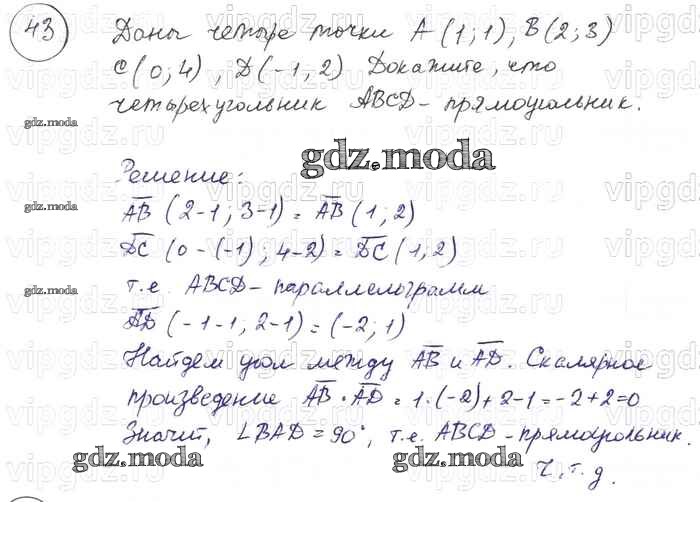 43 Даны четыре точки A (1; 1), B (2; 3)
C (0; 4), D (-1, 2) Докажите, что
четырехугольник ABCD - прямоугольник.
gdz.moda
gdz.moda
Решение:
gdz.moda
AB (2-1; 3-1) = AB (1; 2)
DC (0 - (-1); 4-2) = DC (1; 2)
gdz.moda
т.е. ABCD - параллелограмм
AD (-1-1, 2-1) = (-2; 1)
Найдем угол между AB и AD. Скалярное
произведение AB · AD = 1·(-2)+2-1=-2+2=0
Значит, ∠BAD = 90°, т.е. ABCD - прямоугольник.
gdz.moda gdz.moda
Ч.т.д.